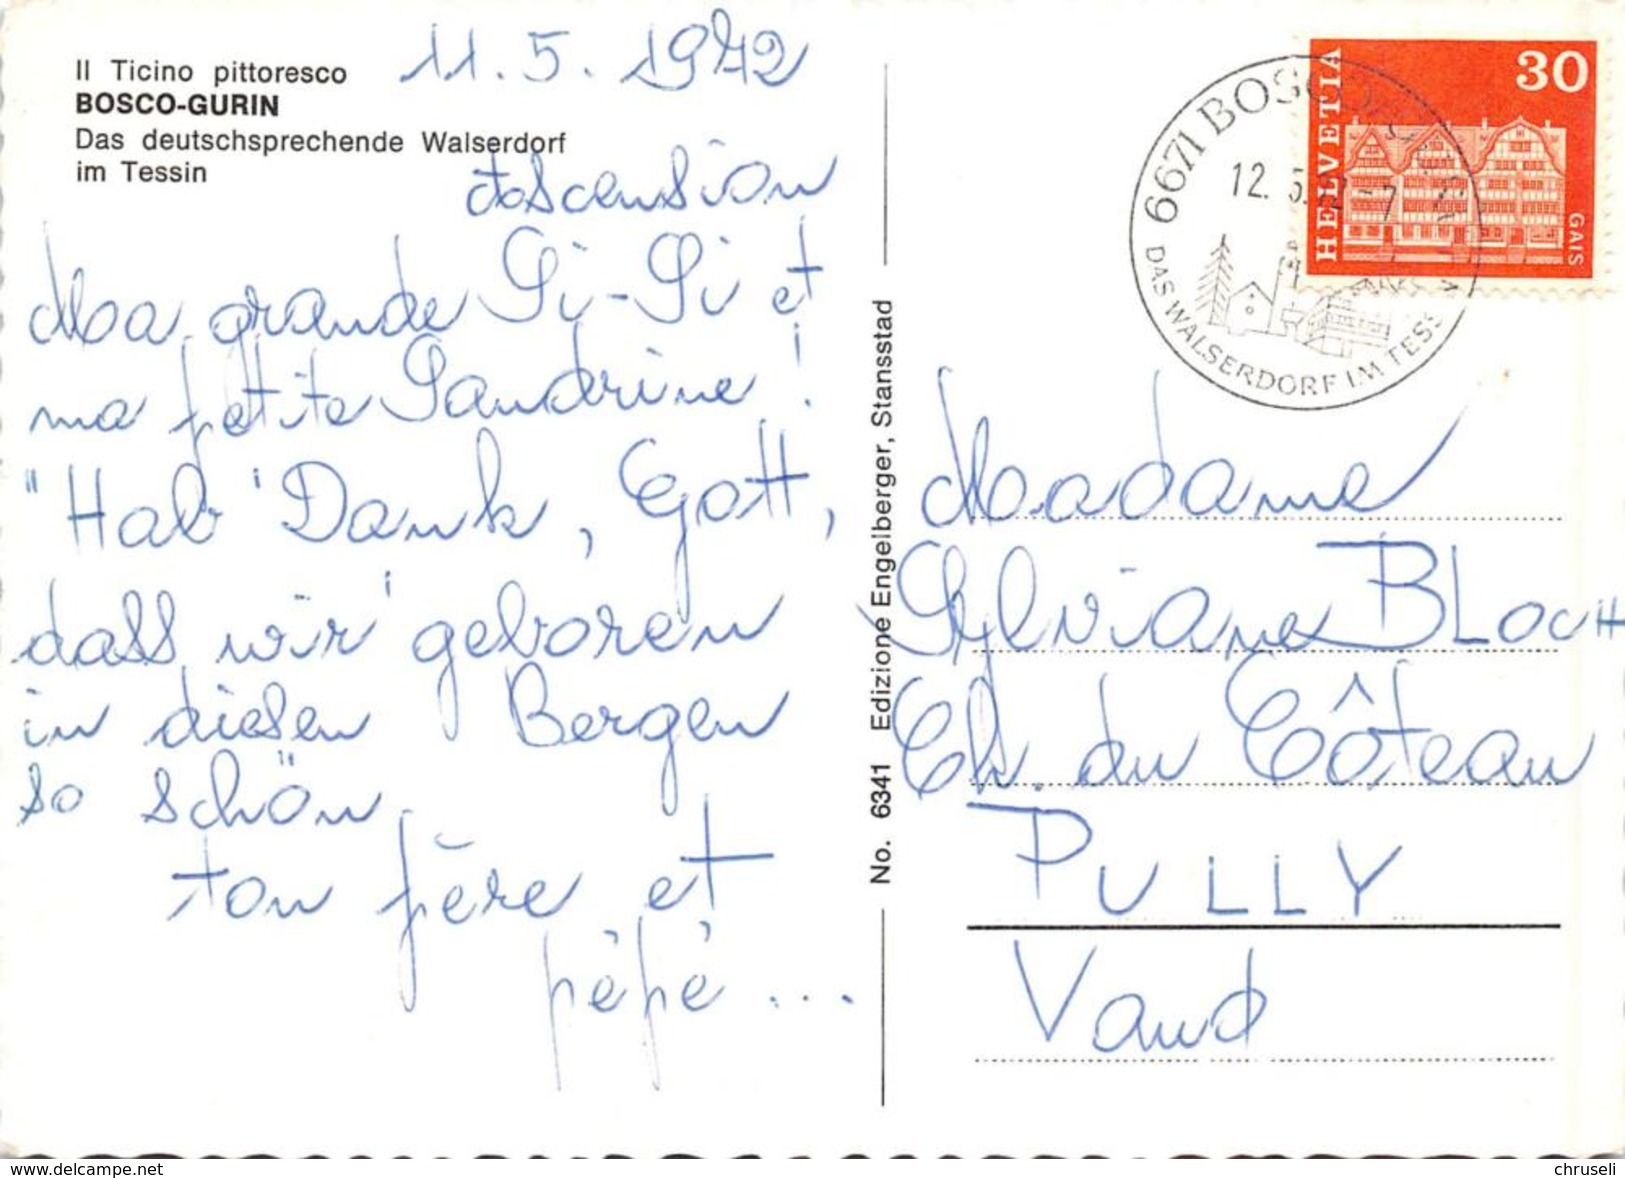 Il Ticino pittoresco
BOSCO-GURIN
Das deutschsprechende Walserdorf
im Tessin
11.5.1972
Ascension
Ma grande Si-Si et
ma petite Sandrine!
"Hab' Dank, Gott,
dass wir' geboren
in diesen Bergen
so schön.
ton père et
pépé ...
No. 6341 Edizione Engelberger, Stansstad
6671 BOSCO
12. 5. 72-7
DAS WALSERDORF IM TESSIN
HELVETIA
30
GAIS
Madame
Sylviane BLOCH
Ch. du Côteau
PULLY
Vaud
www.delcampe.net
chruseli